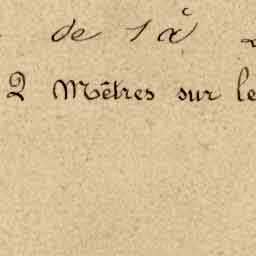 de 1 à
2 Mètres sur le